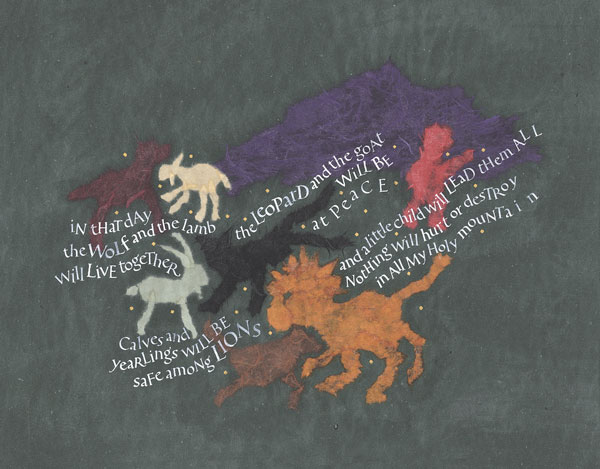 iN tHAT dAy
the WOLF and the lamb
will LIVE togeTHER
the LEOPARD and the goAt
will BE
at PEaCE
and a little child will LEAD tHEM ALL
NotHiNg will hurt or desTROY
in All My Holy mOUNTaiN
CALves and
yeaRLings WiLL BE
safe amoNg LIONs